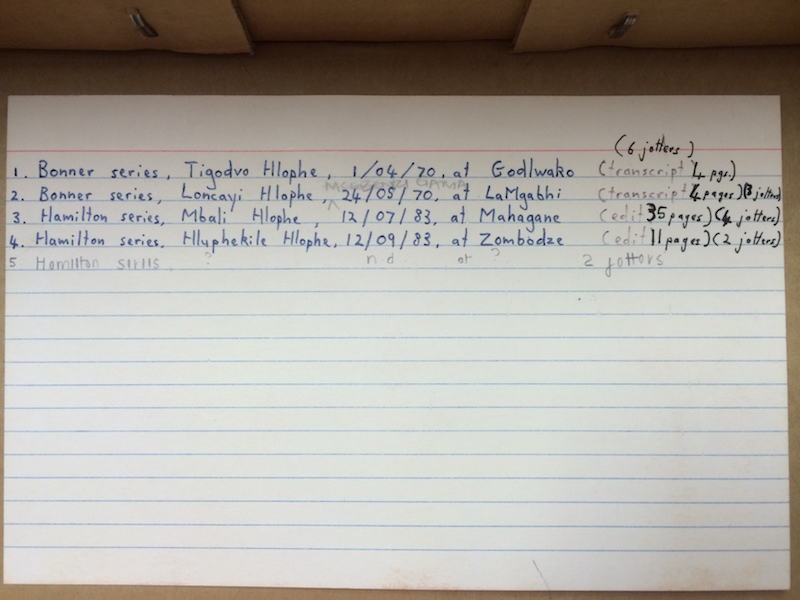 (6 jotters)
1. Bonner series, Tigodvo Hlophe, 1/04/70, at Godlwako (transcript 4 pgs)
GAMA
2. Bonner series, Loncayi Hlophe 24/05/70, at LaMgabhi (transcript 4 pages) (3 jotters)
3. Hamilton series, Mbali Hlophe, 12/07/83, at Mahagane (edit 35 pages) (4 jotters)
4. Hamilton series, Hluphekile Hlophe, 12/09/83, at Zombodze (edit 11 pages) (2 jotters)
5 Hamilton series ? n d at ? 2 jotters